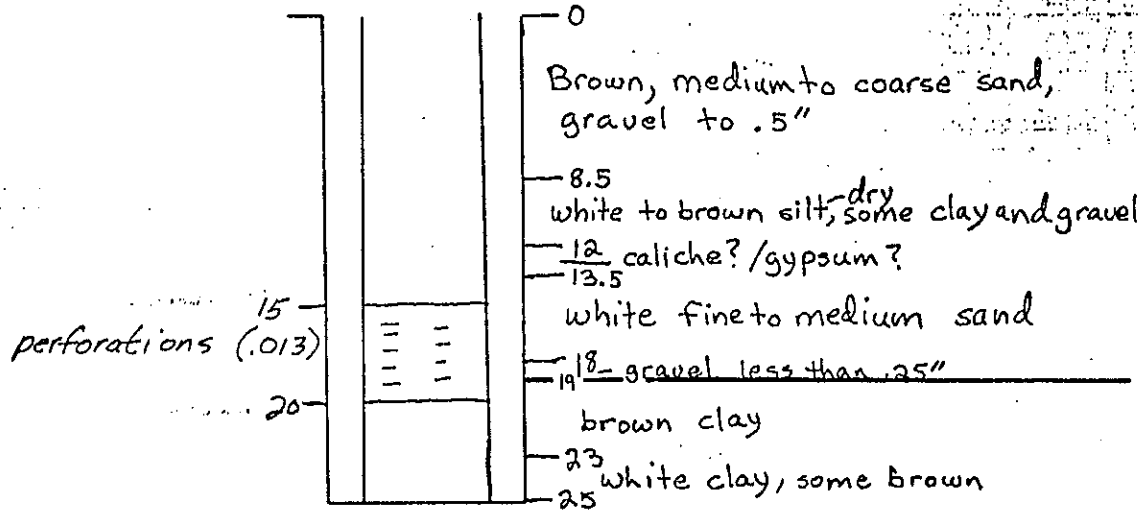 0
Brown, medium to coarse sand,
gravel to .5"
8.5
white to brown silt, -dry some clay and gravel
12 caliche? /gypsum?
13.5
15
white fine to medium sand
perforations (.013)
18- gravel less than .25"
19
20
brown clay
23
white clay, some brown
25